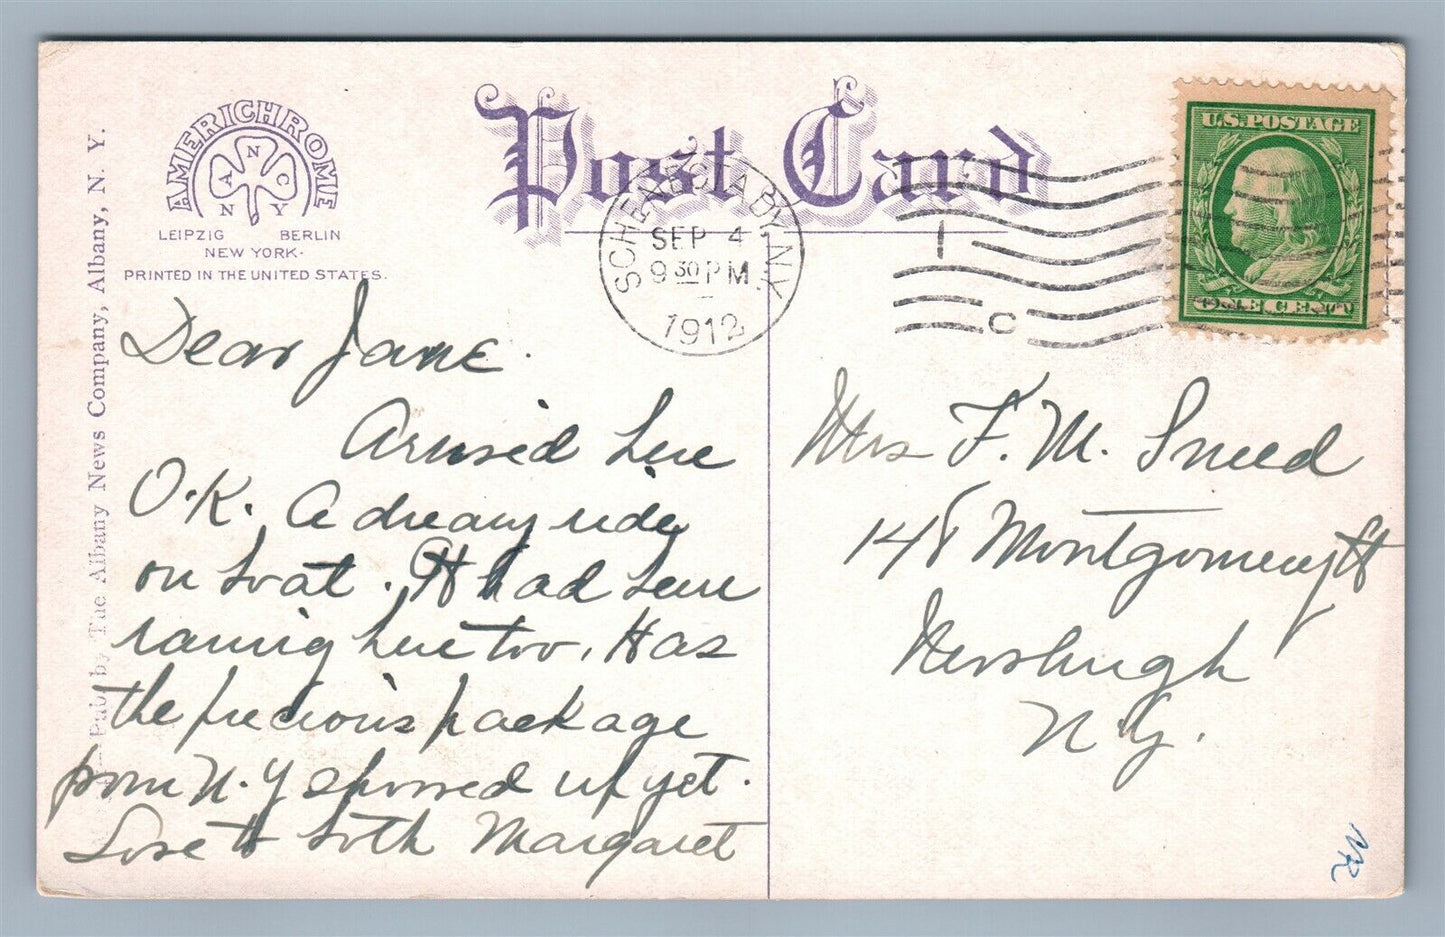 AMERICHROME
A N C
N Y
LEIPZIG BERLIN
NEW YORK.
PRINTED IN THE UNITED STATES.
Publ. by The Albany News Company, Albany, N. Y.
Post Card
SCHENECTADY, N.Y.
SEP 4
9 30 PM
1912
1
C
U.S. POSTAGE
ONE CENT
Dear Jane.
Arrived here
O.K. A dreary ride
on boat. It had been
raining here too. Has
the precious package
from N.Y showed up yet.
Love to both Margaret
Mrs F. M. Sneed
148 Montgomery St
Newburgh
N.Y.
NR